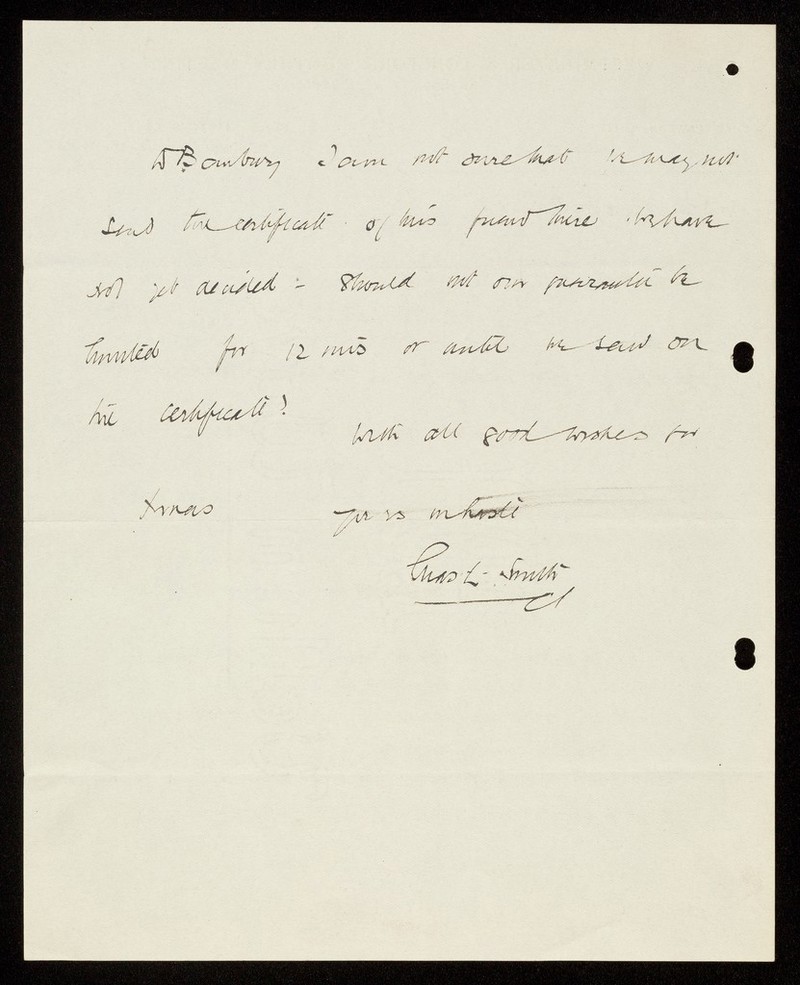 D Banbury I am not sure that we may not
send the certificate of his friend here. We have
not yet decided - Should not our guarantee be
limited for 12 mts or until we send on
the certificate?
With all good wishes for
Xmas yrs in haste
Chas E. Smith